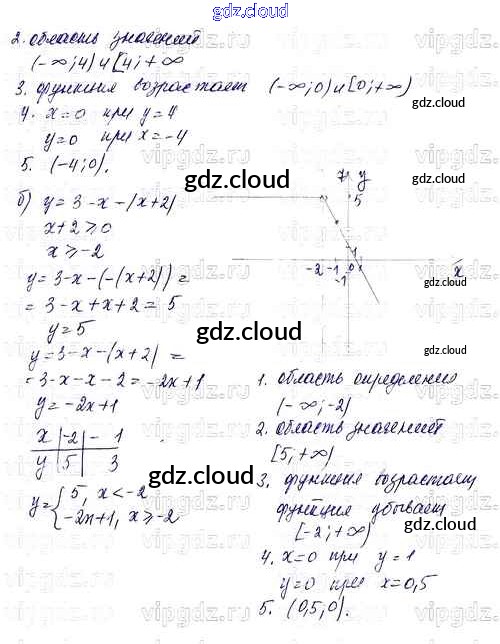 gdz.cloud
2. область значений
(-∞; 4) и [4; +∞
3. функция возрастает (-∞; 0) и [0; +∞)
4. x=0 при y=4
y=0 при x=-4
5. (-4; 0).
б) y = 3 - x - |x+2|
x+2 ≥ 0
x ≥ -2
y = 3-x-(-(x+2)) =
= 3-x+x+2 = 5
y=5
y = 3-x-(x+2) =
= 3-x-x-2 = -2x+1
y = -2x+1
x | -2 | -1
y | 5 | 3
y = { 5, x < -2
-2x+1, x ≥ -2
7 y
5
1
-2 -1 0 x
-1
1. область определения
(-∞; -2)
2. область значений
[5; +∞)
3. функция возрастает
функция убывает
[-2; +∞)
4. x=0 при y=1
y=0 при x=0,5
5. (0,5; 0).
gdz.cloud
gdz.cloud
gdz.cloud
gdz.cloud
gdz.cloud
gdz.cloud
gdz.cloud
gdz.cloud
vipgdz.ru